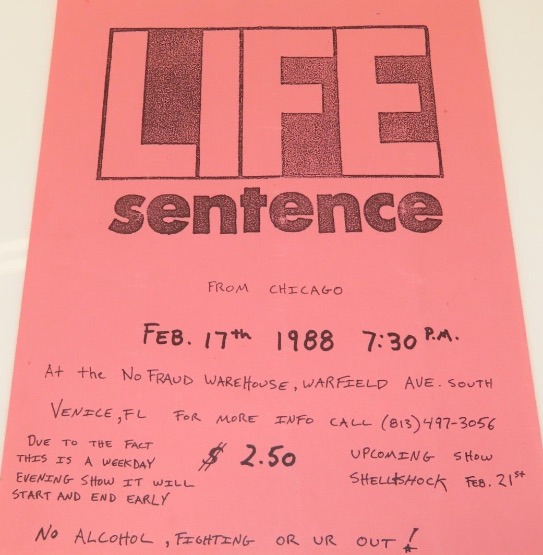 LIFE
sentence
FROM CHICAGO
FEB. 17th 1988 7:30 P.M.
At the NO FRAUD WAREHOUSE, WARFIELD AVE. SOUTH
VENICE, FL FOR MORE INFO CALL (813)497-3056
DUE TO THE FACT
THIS IS A WEEKDAY
EVENING SHOW IT WILL
START AND END EARLY
$ 2.50
UPCOMING SHOW
SHELLSHOCK FEB. 21st
NO ALCOHOL, FIGHTING OR UR OUT!